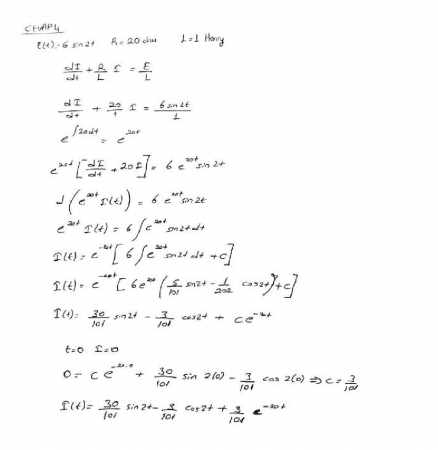 CEVAP4
E(t)=6 sin2t R=20 ohm L=1 Henry
dI/dt + R/L I = E/L
dI/dt + 20/1 I = 6 sin2t/1
e^∫20dt = e^20t
e^20t [dI/dt + 20I] = 6 e^20t sin2t
d(e^20t I(t)) = 6 e^20t sin2t
e^20t I(t) = 6∫e^20t sin2t dt
I(t) = e^-20t [6∫e^20t sin2t dt + c]
I(t) = e^-20t [6e^20t (5/101 sin2t - 1/202 cos2t) + c]
I(t) = 30/101 sin2t - 3/101 cos2t + ce^-20t
t=0 I=0
0 = ce^-20.0 + 30/101 sin 2(0) - 3/101 cos 2(0) ⇒ c = 3/101
I(t) = 30/101 sin2t - 3/101 cos2t + 3/101 e^-20t